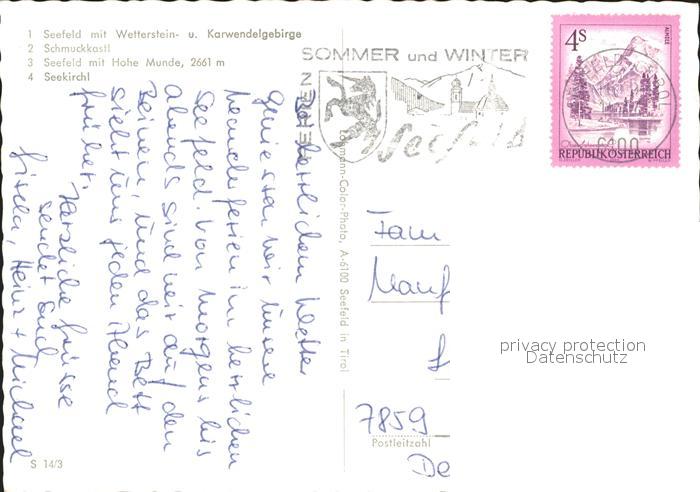 1 Seefeld mit Wetterstein- u. Karwendelgebirge
2 Schmuckastl
3 Seefeld mit Hohe Munde, 2661 m
4 Seekirchl
SOMMER und WINTER
Seefeld
4S
REPUBLIK ÖSTERREICH
6100
Bei herrlichem Wetter
geniessen wir unsere
Wanderferien im herrlichen
Seefeld. Von morgens bis
abends sind wir auf den
Beinen, und das Bett
sieht uns jeden Abend
früher.
Herzliche Grüsse
sendet Euch
Gisela, Heinz + Michael
-Color-Photo, A-6100 Seefeld in Tirol
Fam
Manf
7859
Postleitzahl
De
privacy protection
Datenschutz
S 14/3